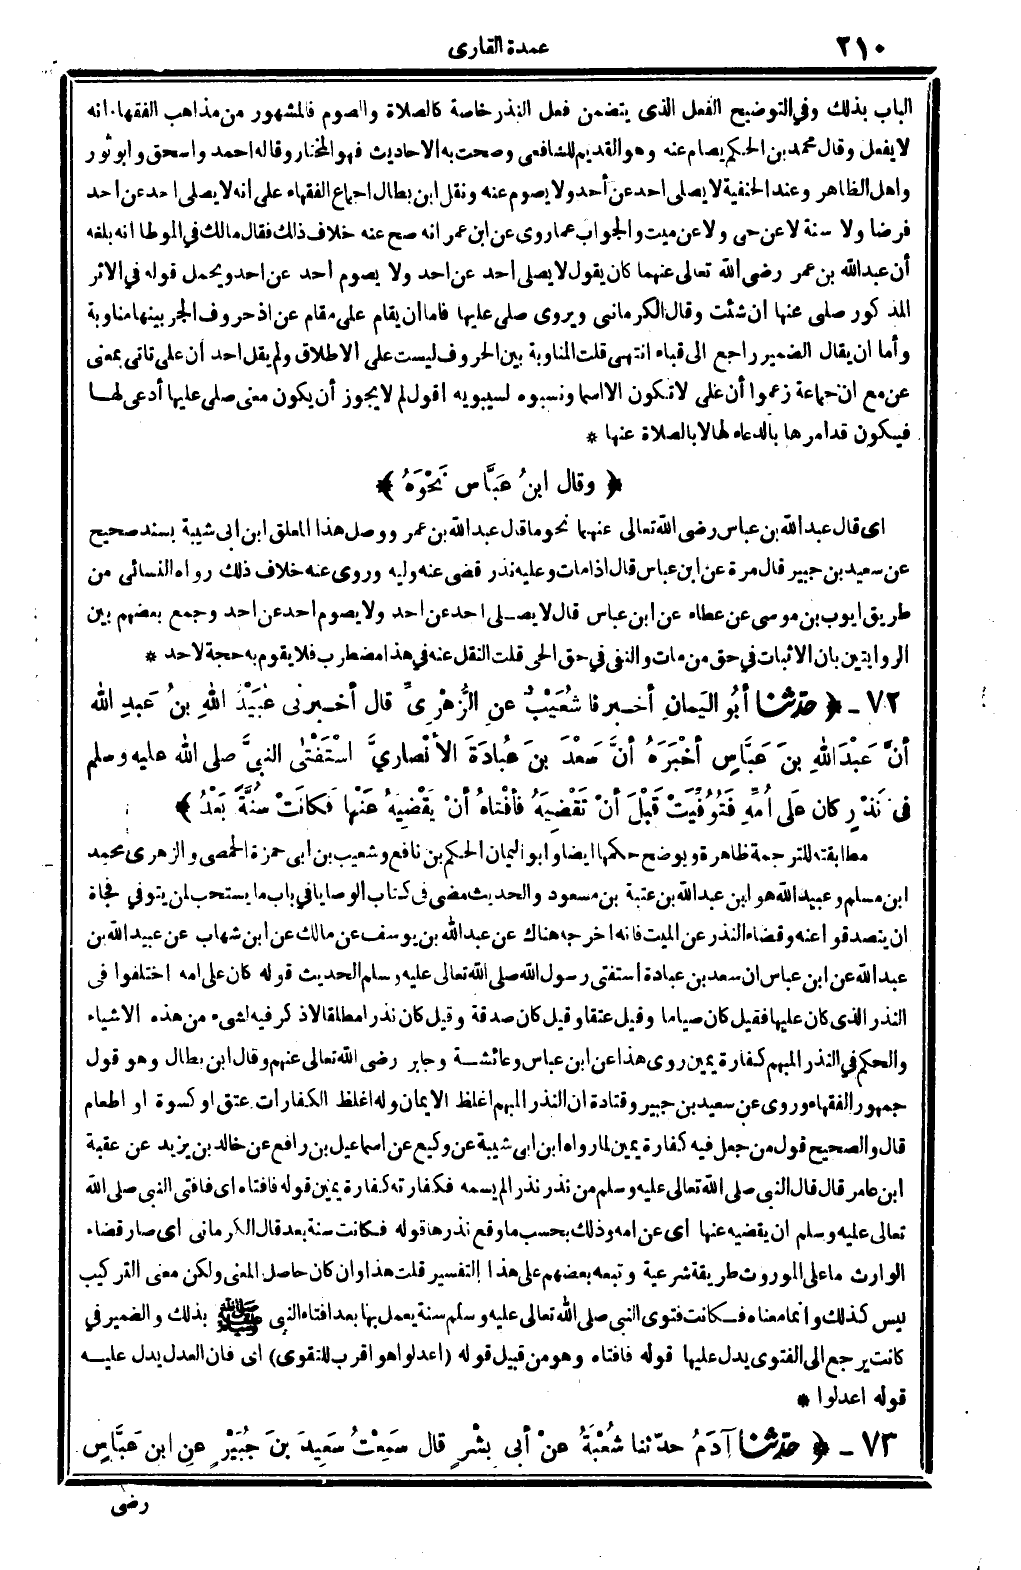 ٢١٠
عمدة القارى
الباب بذلك وفي التوضيح الفعل الذى يتضمن فعل النذر خاصة كالصلاة والصوم فالمشهور من مذاهب الفقهاء انه
لا يفعل وقال محمد بن الحكم يصام عنه وهو القديم للشافعى وصحت به الاحاديث فهو المختار وقاله احمد واسحق وابو ثور
واهل الظاهر وعند الحنفية لا يصلى احد عن أحد ولا يصوم عنه ونقل ابن بطال اجماع الفقهاء على انه لا يصلى احد عن احد
فرضا ولا سنة لا عن حى ولا عن ميت والجواب عما روى عن ابن عمر انه صح عنه خلاف ذلك فقال مالك في الموطا انه بلغه
أن عبدالله بن عمر رضى الله تعالى عنهما كان يقول لا يصلى احد عن احد ولا يصوم أحد عن احد ويحمل قوله في الاثر
المذكور صلى عنها ان شئت وقال الكرمانى ويروى صلى عليها فاما ان يقام على مقام عن اذ حروف الجر بينها مناوبة
وأما ان يقال الضمير راجع الى قباء انتهى قلت المناوبة بين الحروف ليست على الاطلاق ولم يقل احد أن على تاتى بمعنى
عن مع ان جماعة زعموا أن على لا تكون الا اسما ونسبوه لسيبويه اقول لم لا يجوز أن يكون معنى صلى عليها أدعى لها
فيكون قد امرها بالدعاء لها لا بالصلاة عنها *
﴿ وقال ابنُ عَبَّاس نَحْوَهُ ﴾
اى قال عبدالله بن عباس رضى الله تعالى عنهما نحو ما قال عبدالله بن عمر ووصل هذا المعلق ابن ابى شيبة بسند صحيح
عن سعيد بن جبير قال مرة عن ابن عباس قال اذا مات وعليه نذر قضى عنه وليه وروى عنه خلاف ذلك رواه النسائى من
طريق ايوب بن موسى عن عطاء عن ابن عباس قال لا يصلى احد عن احد ولا يصوم احد عن احد وجمع بعضهم بين
الروايتين بان الاثبات في حق من مات والنفى في حق الحى قلت النقل عنه في هذا مضطرب فلا يقوم به حجة لاحد *
٧٢ - ﴿ حدّثنا أبُو اليَمانِ أخـبرنا شُعَيْبٌ عنِ الزُّهْرِىِّ قال أخـبرنى عُبَيْدُ اللهِ بنُ عَبدِ الله
أنَّ عَبْدَ اللهِ بنَ عَبَّاسٍ أخْبَرَهُ أنَّ سَعْدَ بنَ عُبادَةَ الأنْصاريَّ اسْتَفْتٰى النبيَّ صلى الله عليه وسلم
فى نَذْرٍ كان عَلَى أُمِّهِ فَتُوُفِّيَتْ قَبْلَ أنْ تَقْضِيَهُ فأفْتاهُ أنْ يَقْضِيَهُ عَنْها فَكانَتْ سُنَّةً بَعْدُ ﴾
مطابقته للترجمة ظاهرة ويوضح حكمها ايضا وابو اليمان الحكم بن نافع وشعيب بن ابى حمزة الحمصى والزهرى محمد
ابن مسلم وعبيد الله هو ابن عبد الله بن عتبة بن مسعود والحديث مضى فى كتاب الوصايا في باب ما يستحب لمن يتوفي فجاة
ان يتصدقوا عنه وقضاء النذر عن الميت فانه اخرجه هناك عن عبدالله بن يوسف عن مالك عن ابن شهاب عن عبيد الله بن
عبد الله عن ابن عباس ان سعد بن عبادة استفتى رسول الله صلى الله تعالى عليه وسلم الحديث قوله كان على امه اختلفوا فى
النذر الذى كان عليها فقيل كان صياما وقيل عتقا وقيل كان صدقة وقيل كان نذرا مطلقا لا ذكر فيه لشىء من هذه الاشياء
والحكم في النذر المبهم كفارة يمين روى هذا عن ابن عباس وعائشة وجابر رضى الله تعالى عنهم وقال ابن بطال وهو قول
جمهور الفقهاء وروى عن سعيد بن جبير وقتادة ان النذر المبهم اغلظ الايمان وله اغلظ الكفارات عتق او كسوة او اطعام
قال والصحيح قول من جعل فيه كفارة يمين لما رواه ابن ابى شيبة عن وكيع عن اسماعيل بن رافع عن خالد بن يزيد عن عقبة
ابن عامر قال قال النبى صلى الله تعالى عليه وسلم من نذر نذر الم يسمه فكفارته كفارة يمين قوله فافتاه اى فافتى النبى صلى الله
تعالى عليه وسلم ان يقضيه عنها اى عن امه وذلك بحسب ما وقع نذرها قوله فكانت سنة بعد قال الكرمانى اى صار قضاء
الوارث ما على الموروث طريقة شرعية وتبعه بعضهم على هذا التفسير قلت هذا وان كان حاصل المعنى ولكن معنى التركيب
ليس كذلك وانما معناه فكانت فتوى النبى صلى الله تعالى عليه وسلم سنة يعمل بها بعد افتاء النبى ﷺ بذلك والضمير في
كانت يرجع الى الفتوى يدل عليها قوله فافتاه وهو من قبيل قوله (اعدلوا هو اقرب للتقوى) اى فان العدل يدل عليه
قوله اعدلوا *
٧٣ - ﴿ حدّثنا آدَمُ حدّثنا شُعْبَةُ عنْ أبى بِشْرٍ قال سَمِعْتُ سَعِيدَ بنَ جُبَيْرٍ عنِ ابن عَبَّاس
رضى